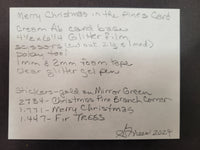 Merry Christmas in the Pines Card
Cream A6 card base
4 1/2 x 6 1/4 Glitter Film
scissors (cut out 2 lg & 1 med)
bone tool
1mm & 2mm foam tape
clear glitter gel pen
Stickers - gold on Mirror Green
2784 - Christmas Pine Branch Corner
1.771 - Merry Christmas
1.447 - Fir Trees
2024